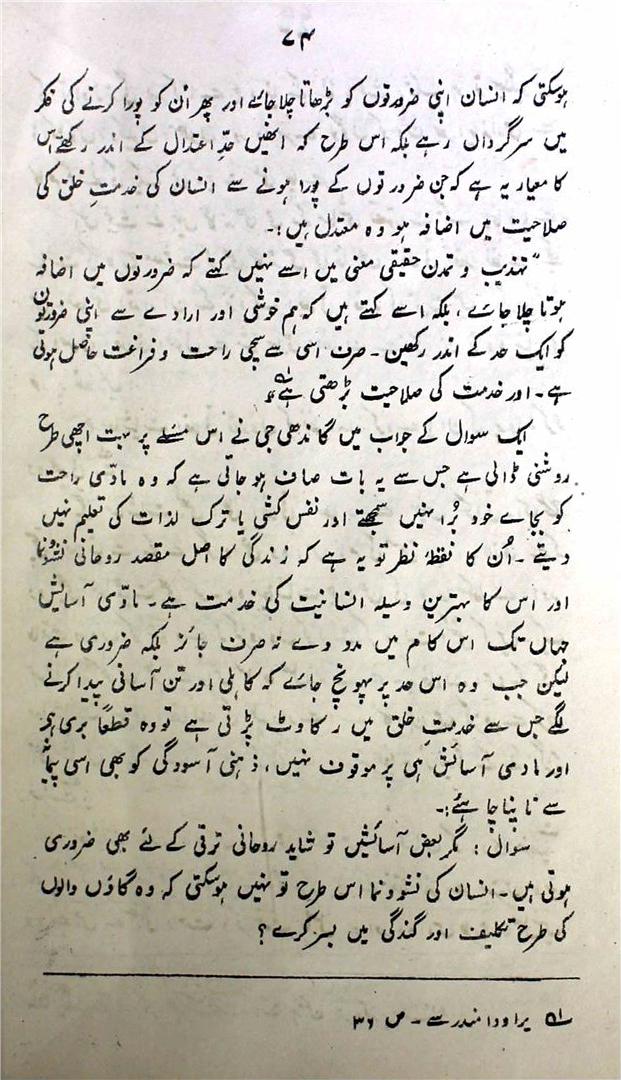 ۷۴
ہوسکتی کہ انسان اپنی ضرورتوں کو بڑھاتا چلا جائے اور پھر اُن کو پورا کرنے کی فکر
میں سرگرداں رہے بلکہ اس طرح کہ انھیں حدِّ اعتدال کے اندر رکھے اس
کا معیار یہ ہے کہ جن ضرورتوں کے پورا ہونے سے انسان کی خدمتِ خلق کی
صلاحیت میں اضافہ ہو وہ معتدل ہیں :۔
”تہذیب و تمدن حقیقی معنی میں اسے نہیں کہتے کہ ضرورتوں میں اضافہ
ہوتا چلا جائے، بلکہ اسے کہتے ہیں کہ ہم خوشی اور ارادے سے اپنی ضرورتوں
کو ایک حد کے اندر رکھیں۔ صرف اسی سے سچی راحت و فراغت حاصل ہوتی
ہے۔ اور خدمت کی صلاحیت بڑھتی ہے“ ۱؎
ایک سوال کے جواب میں گاندھی جی نے اس مسئلے پر بہت اچھی طرح
روشنی ڈالی ہے جس سے یہ بات صاف ہو جاتی ہے کہ وہ مادّی راحت
کو بجائے خود بُرا نہیں سمجھتے اور نفس کشی یا ترک لذات کی تعلیم نہیں
دیتے۔ اُن کا نقطۂ نظر تو یہ ہے کہ زندگی کا اصل مقصد روحانی نشوونما
اور اس کا بہترین وسیلہ انسانیت کی خدمت ہے۔ مادّی آسایش
جہاں تک اس کام میں مدد دے نہ صرف جائز بلکہ ضروری ہے
لیکن جب وہ اس حد پر پہونچ جائے کہ کاہلی اور تن آسانی پیدا کرنے
لگے جس سے خدمتِ خلق میں رکاوٹ پڑتی ہے تو وہ قطعاً بری ہے
اور مادی آسائش ہی پر موقوف نہیں، ذہنی آسودگی کو بھی اسی پیمانے
سے ناپنا چاہئے :۔
سوال : مگر بعض آسائشیں تو شاید روحانی ترقی کے لئے بھی ضروری
ہوتی ہیں۔ انسان کی نشوونما اس طرح تو نہیں ہوسکتی کہ وہ گاؤں والوں
کی طرح تکلیف اور گندگی میں بسر کرے؟
۱؎ یراودا مندر سے۔ ص ۳۶